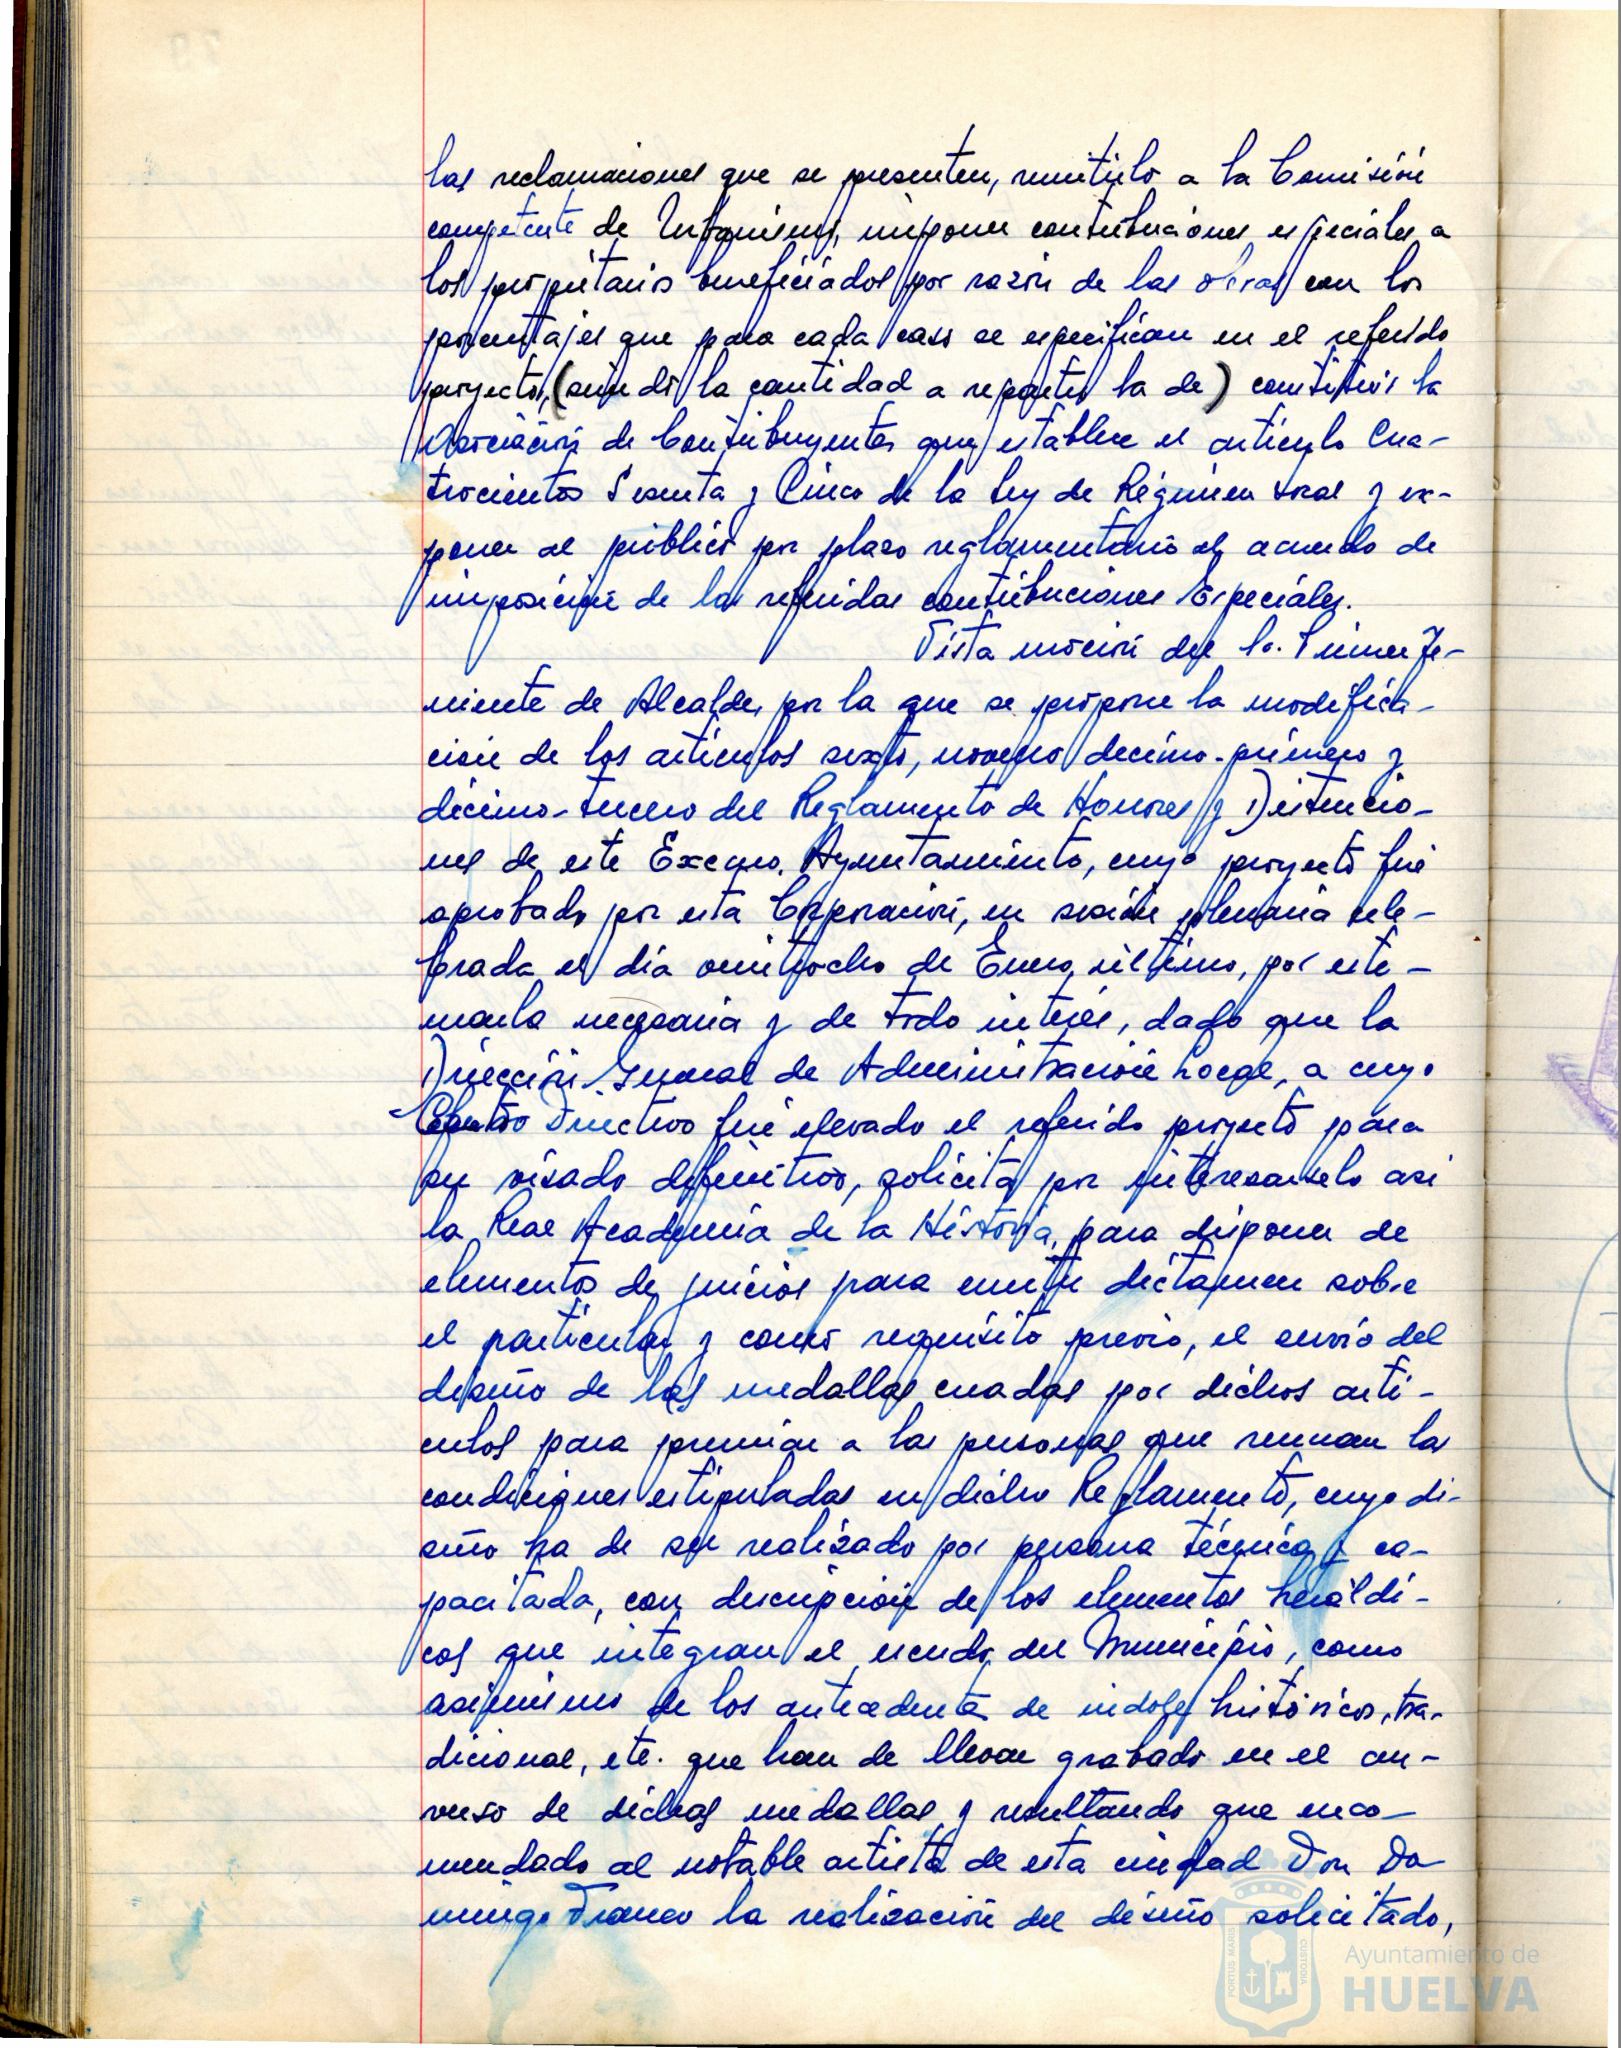 las reclamaciones que se presenten, remitirlo a la Comisión
competente de Urbanismo, imponer contribuciones especiales a
los propietarios beneficiados por razón de las obras con los
porcentajes que para cada caso se especifican en el referido
proyecto, (siendo la cantidad a repartir la de) constituir la
Asociación de Contribuyentes que establece el artículo Cua-
trocientos Sesenta y Cinco de la Ley de Régimen Local y ex-
poner al público por plazo reglamentario el acuerdo de
imposición de las referidas contribuciones Especiales.
Vista moción del Sr. Primer Te-
niente de Alcalde, por la que se propone la modifica-
ción de los artículos sexto, noveno décimo-primero y
décimo-tercero del Reglamento de Honores y Distincio-
nes de este Excmo. Ayuntamiento, cuyo proyecto fué
aprobado por esta Corporación, en sesión plenaria cele-
brada el día veintiocho de Enero último, por esti-
marla necesaria y de todo interés, dado que la
Dirección General de Administración Local, a cuyo
Centro Directivo fué elevado el referido proyecto para
su visado definitivo, solicita por interesarselo asi
la Real Academia de la Historia, para disponer de
elementos de juicios para emitir dictamen sobre
el particular y como requisito previo, el envío del
diseño de las medallas creadas por dichos artí-
culos para premiar a las personas que reunan las
condiciones estipuladas en dicho Reglamento, cuyo di-
seño ha de ser realizado por persona técnica y ca-
pacitada, con descripción de los elementos heráldi-
cos que integran el escudo del Municipio, como
asimismo de los antecedentes de indole históricos, tra-
dicional, etc. que han de llevar grabado en el an-
verso de dichas medallas y resultando que enco-
mendado al notable artista de esta ciudad Don Do
mingo Franco la realización del diseño solicitado,
PORTUS MARIS CUSTODIA
Ayuntamiento de
HUELVA